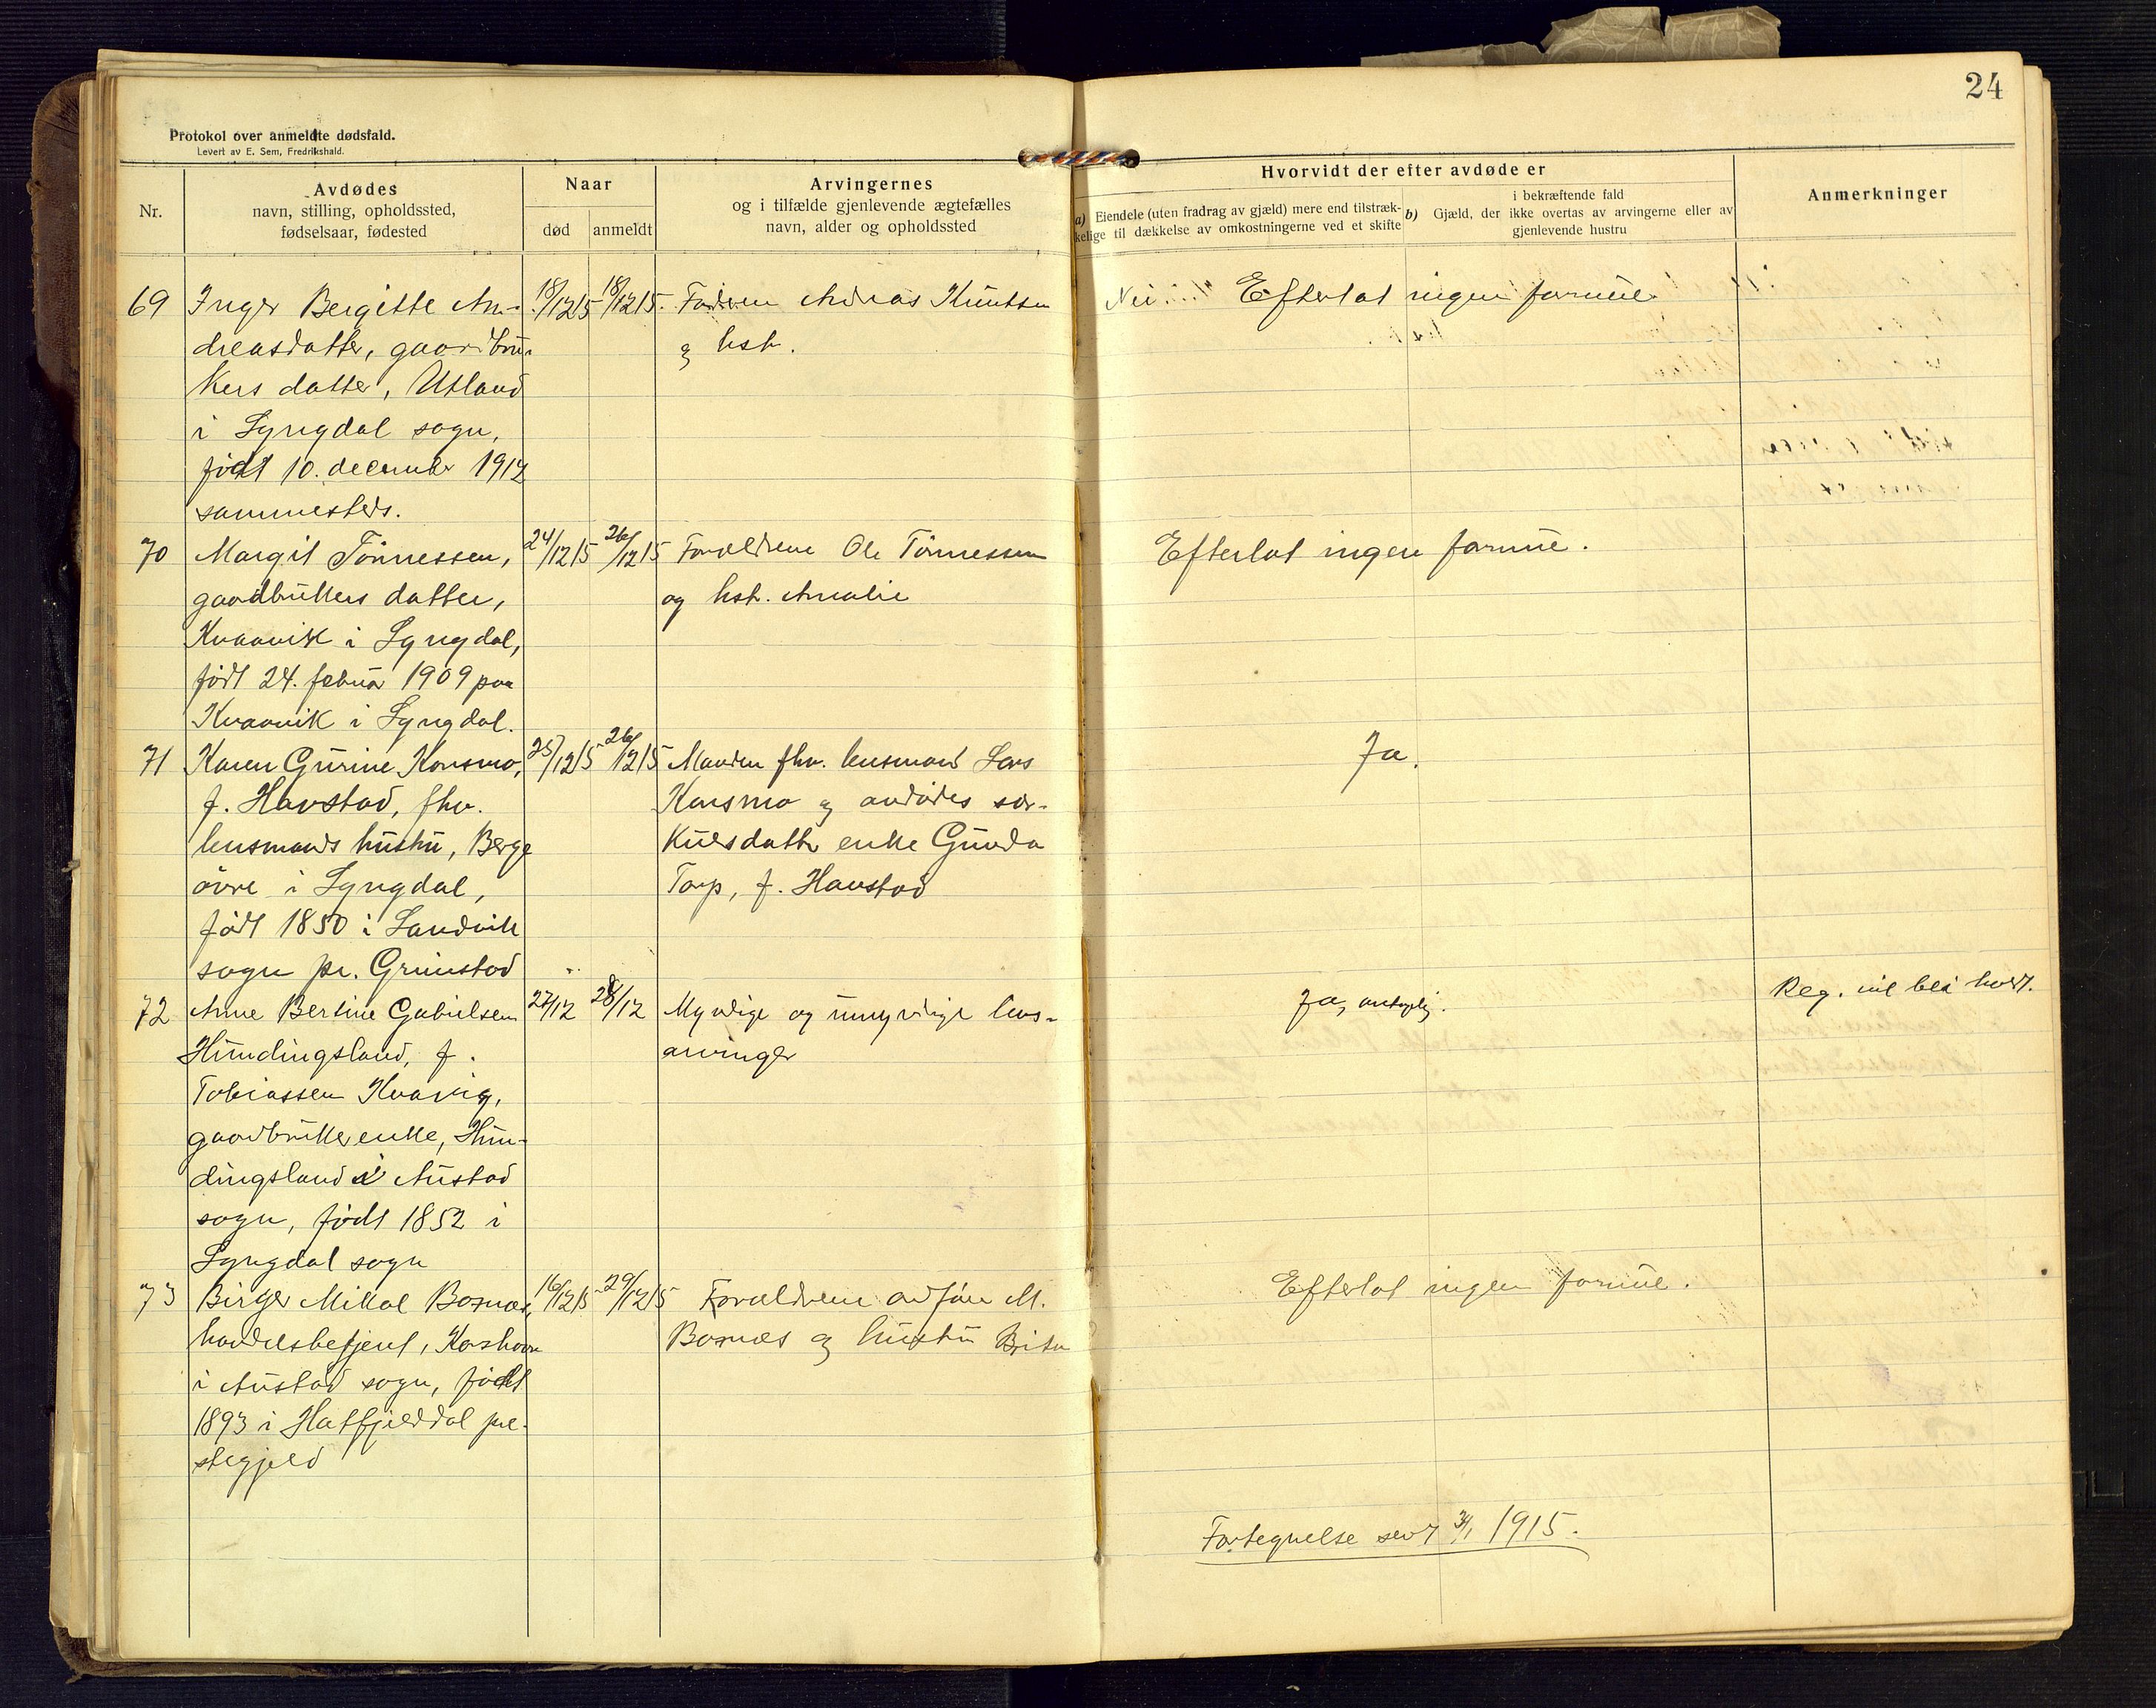 24
Protokol over anmeldte dødsfald.
Levert av E. Sem, Fredrikshald.
Nr.
Avdødes
navn, stilling, opholdssted,
fødselsaar, fødested
Naar
død
anmeldt
Arvingernes
og i tilfælde gjenlevende ægtefælles
navn, alder og opholdssted
Hvorvidt der efter avdøde er
a) Eiendele (uten fradrag av gjæld) mere end tilstræk-
kelige til dækkelse av omkostningerne ved et skifte
i bekræftende fald
b) Gjæld, der ikke overtas av arvingerne eller av
gjenlevende hustru
Anmerkninger
69
Inger Bergitte An-
dreasdatter, gaardbru-
kers datter, Utland
i Lyngdal sogn,
født 10. december 1912
sammesteds.
18/12 15
18/12 15.
Andreas Knutsen
og hstr.
Nei
Efterlot ingen formue
70
Margit Tönnessen,
gaardbrukers datter,
Kvaavik i Lyngdal,
født 24. februar 1909 paa
Kvaavik i Lyngdal.
24/12 15
26/12 15
Forældrene Ole Tönnessen
og hstr. Amalie
Efterlot ingen formue.
71
Karen Gurine Konsmo,
f. Havstad, fhv.
lensmands hustru, Berge
övre i Lyngdal,
født 1850 i Landvik
sogn pr. Grimstad
25/12 15
26/12 15
Manden fhv. lensmand Lars
Konsmo og avdödes sær-
kulsdatter enke Gunda
Torp, f. Havstad
Ja.
72
Anne Bertine Gabrielsen
Humdingsland, f.
Tobiassen Kvavig,
gaardbrukerenke, Hum-
dingsland i Austad
sogn, født 1852 i
Lyngdal sogn
27/12
28/12
Myndige og umyndige livs-
arvinger
Ja, antagelig.
Reg. vil bli holdt.
73
Birger Mikal Baxnes,
handelsbetjent, Korshavn
i Austad sogn, født
1893 i Hatfjelddal pre-
stegjeld
16/12 15
29/12 15
Forældrene M.
Baxnes og hustru
Efterlot ingen formue.
Fortegnelse sendt 3/1 1915.